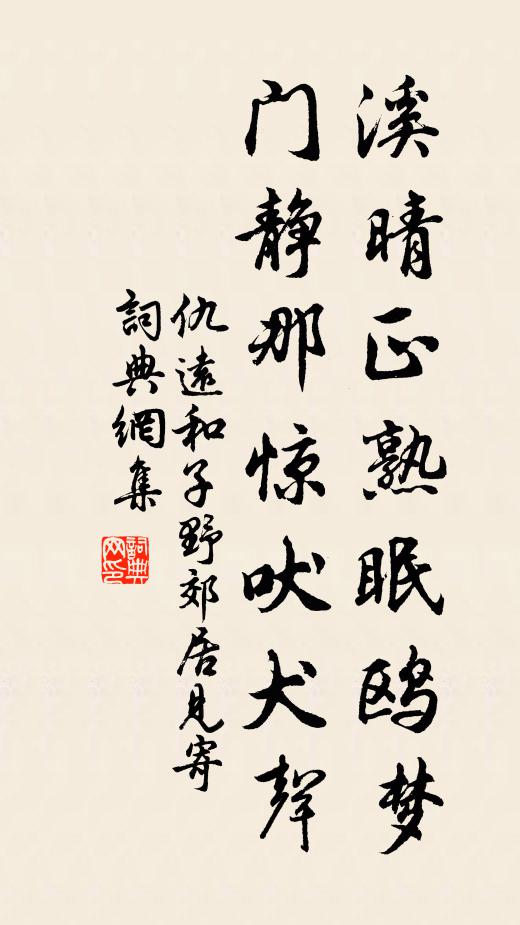 溪晴正熟眠鸥梦
门静那惊吠犬聲
仇遠和子野郊居見寄
詞典網集
詞典网印